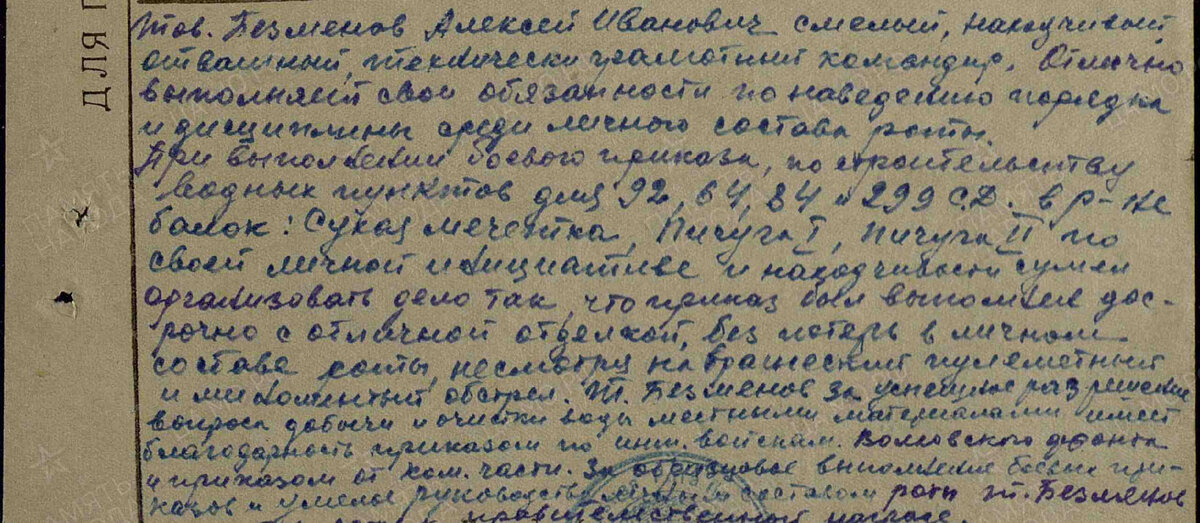 ДЛЯ П
тов. Безменов Алексей Иванович смелый, находчивый,
отважный, технически грамотный командир. Отлично
выполняет свои обязанности по наведению порядка
и дисциплины среди личного состава роты.
При выполнении боевого приказа, по строительству
водных пунктов для 92, 64, 84 и 299 С.Д. в р-не
балок: Сухая мечетка, Пичуга I, Пичуга II по
своей личной инициативе и находчивости сумел
организовать дело так, что приказ был выполнен дос-
рочно с отличной отделкой, без потерь в личном
составе роты, несмотря на вражеский пулеметный
и миномётный обстрел. Т. Безменов за успешное разрешение
вопроса добычи и очистки воды местными материалами имеет
благодарность приказом по инж. войскам. Фронта
и приказом от ком. части. За образцовое выполнение боевых при-
казов и умелое руководство личным составом роты т. Безменов
правительственной награде.